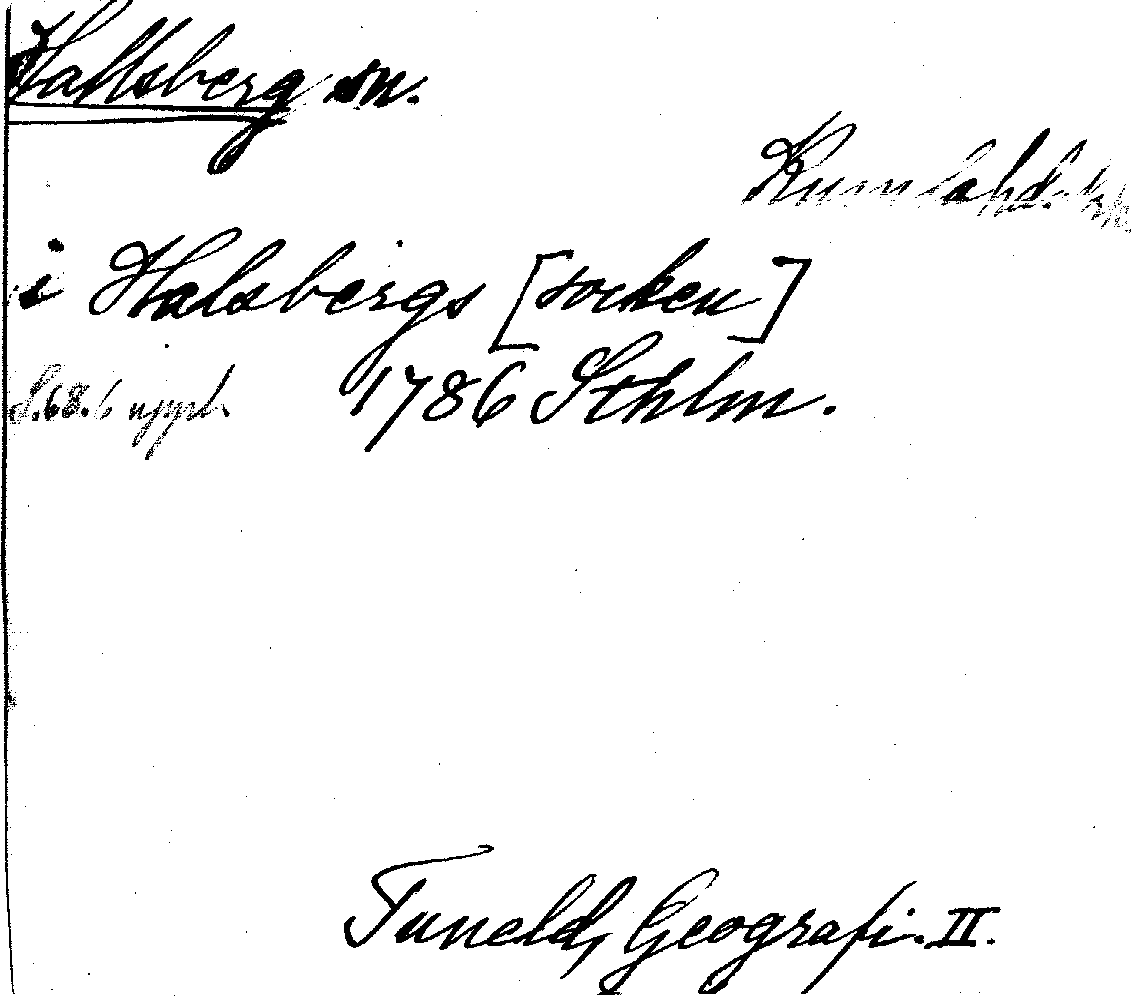 Hallsberg sn.
Kumla hd.
i Halsbergs [socken]
S. 68. 6 uppl. 1786 Sthlm.
Tuneld, Geografi. II.